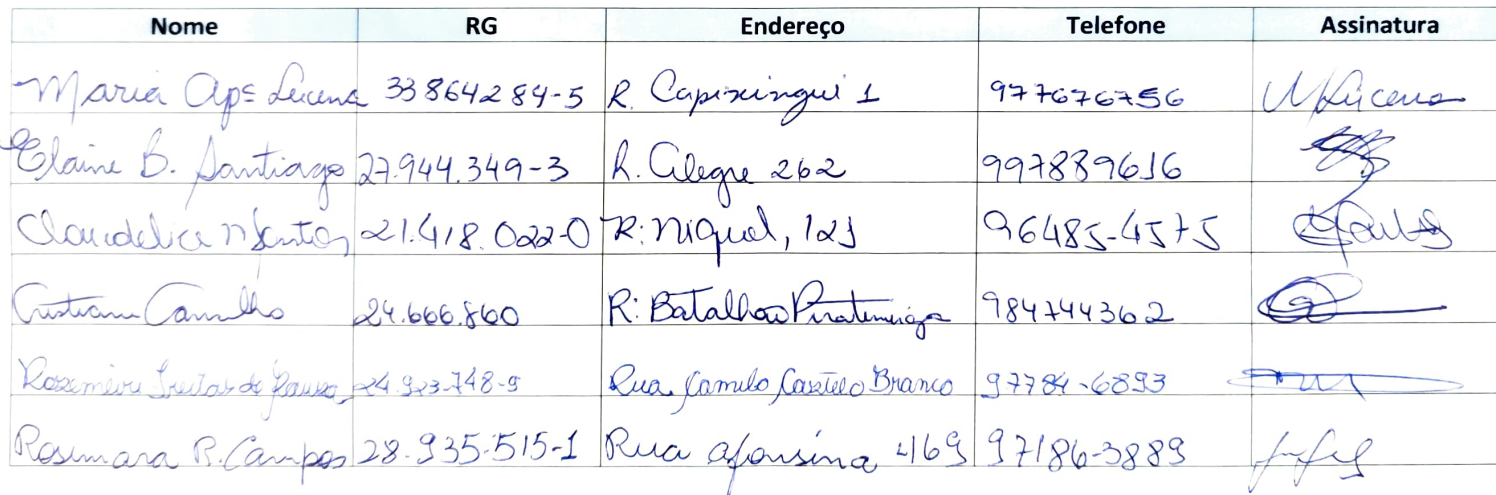 Nome RG Endereço Telefone Assinatura
Maria Apª Lucena 33864284-5 R. Capixingui 1 977676756 MLucena
Elaine B. Santiago 27.944.349-3 R. Alegre 262 997889616
Claudelice M Santos 21.418.022-0 R: Niquel, 121 96485-4575
Cristiane Carvalho 24.666.860 R: Batalhao Piratininga 984744362
Rosemeire Freitas de 24.923.748-9 Rua Camilo Castelo Branco 97784-6893
Rosimara R. Campos 28.935.515-1 Rua afonsina 469 97186-3889